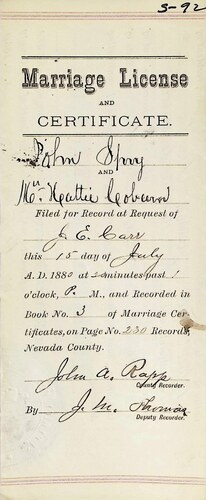 S-92
Marriage License
AND
CERTIFICATE.
John Spry
AND
Mrs. Hattie Coburn
Filed for Record at Request of
J. E. Carr
this 15 day of July
A. D. 1880 at minutes past 1
o'clock, P. M., and Recorded in
Book No. 3 of Marriage Cer-
tificates, on Page No. 230 Records
Nevada County.
John A. Rapp
County Recorder.
By J. M. Thomas
Deputy Recorder.